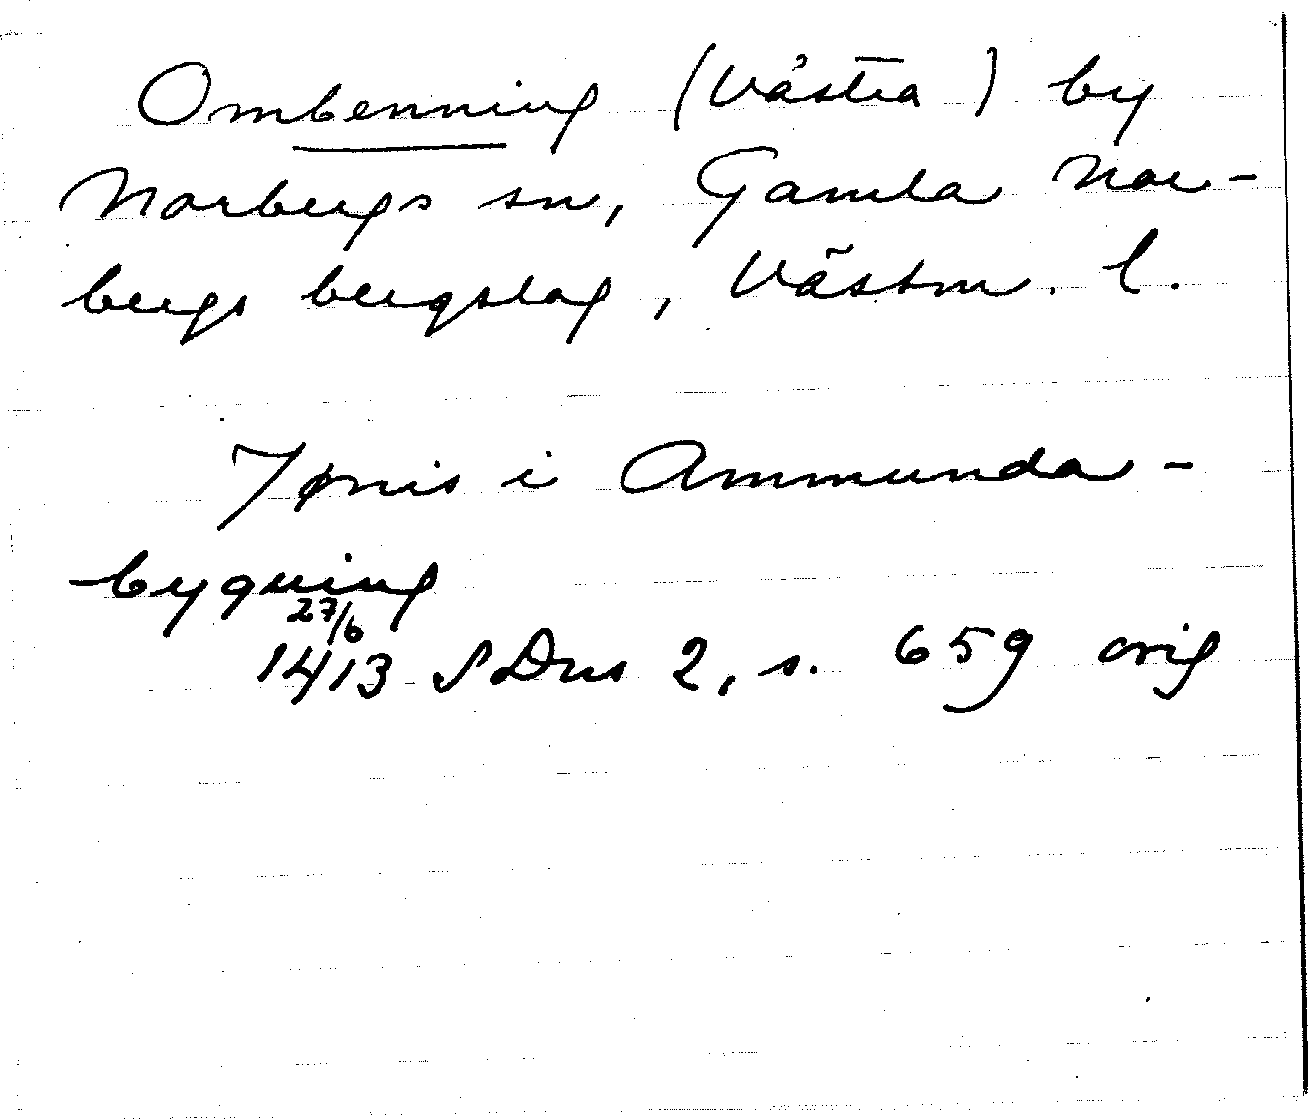 Ombenning (Västra) by
Norbergs sn, Gamla Nor-
bergs bergslag, Västm. l.
Jønis i Ammunda-
bygning
27/6
1413 SDns 2, s. 659 orig